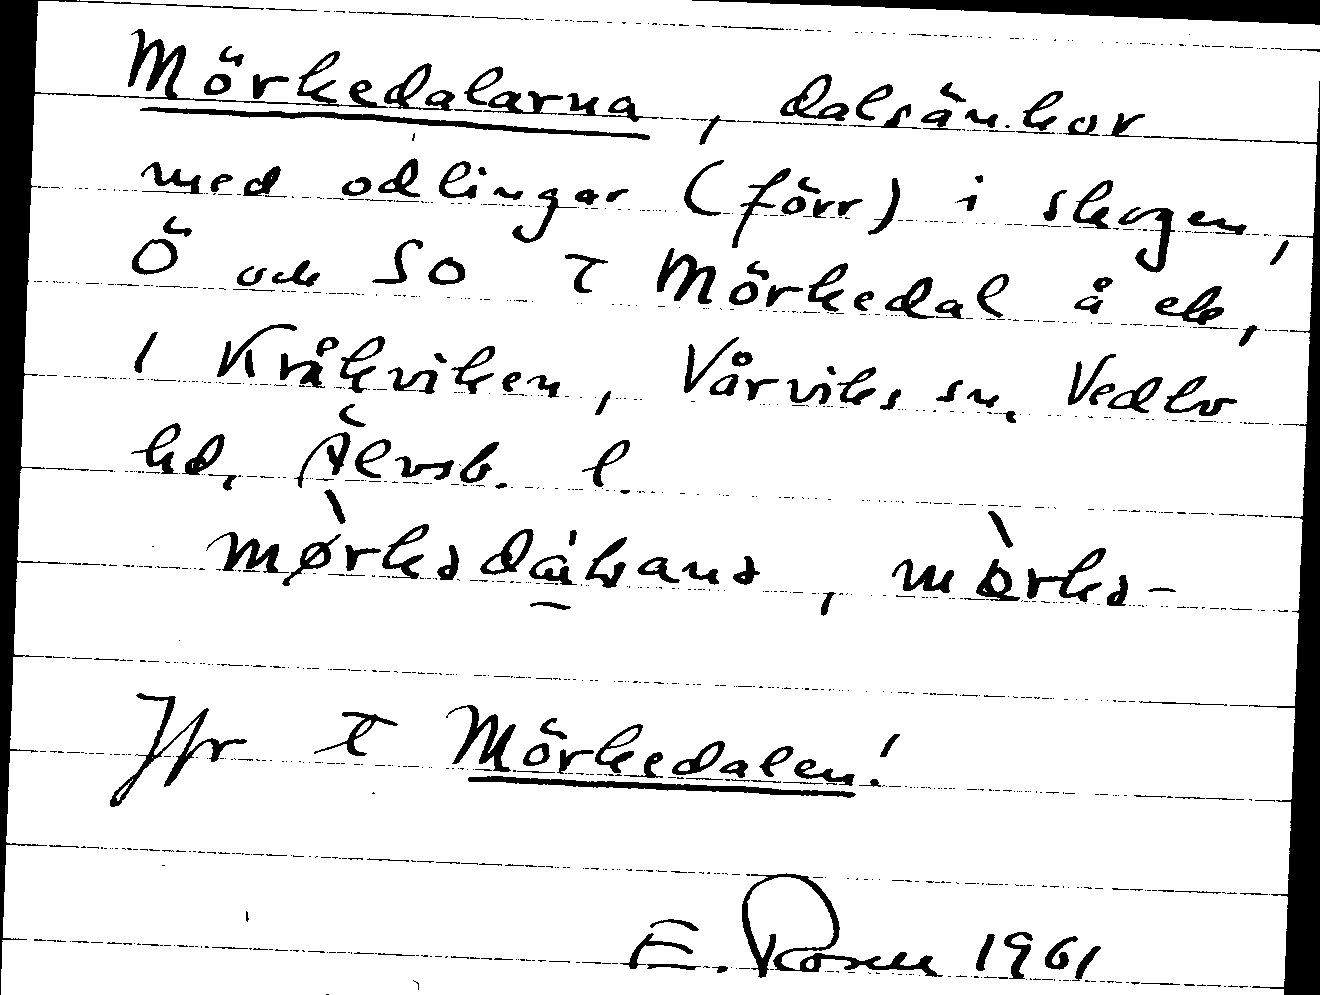 Mörkedalarna, dalsänkor
med odlingar (förr) i skogen,
Ö och SO τ Mörkedal å ek,
1 Kråkviken, Vårviks sn. Vedbo
hd, Älvsb. l.
mø̀rkədáƚ̥anə, mòrkə-
Jfr t Mörkedalen!
E. Rosell 1961